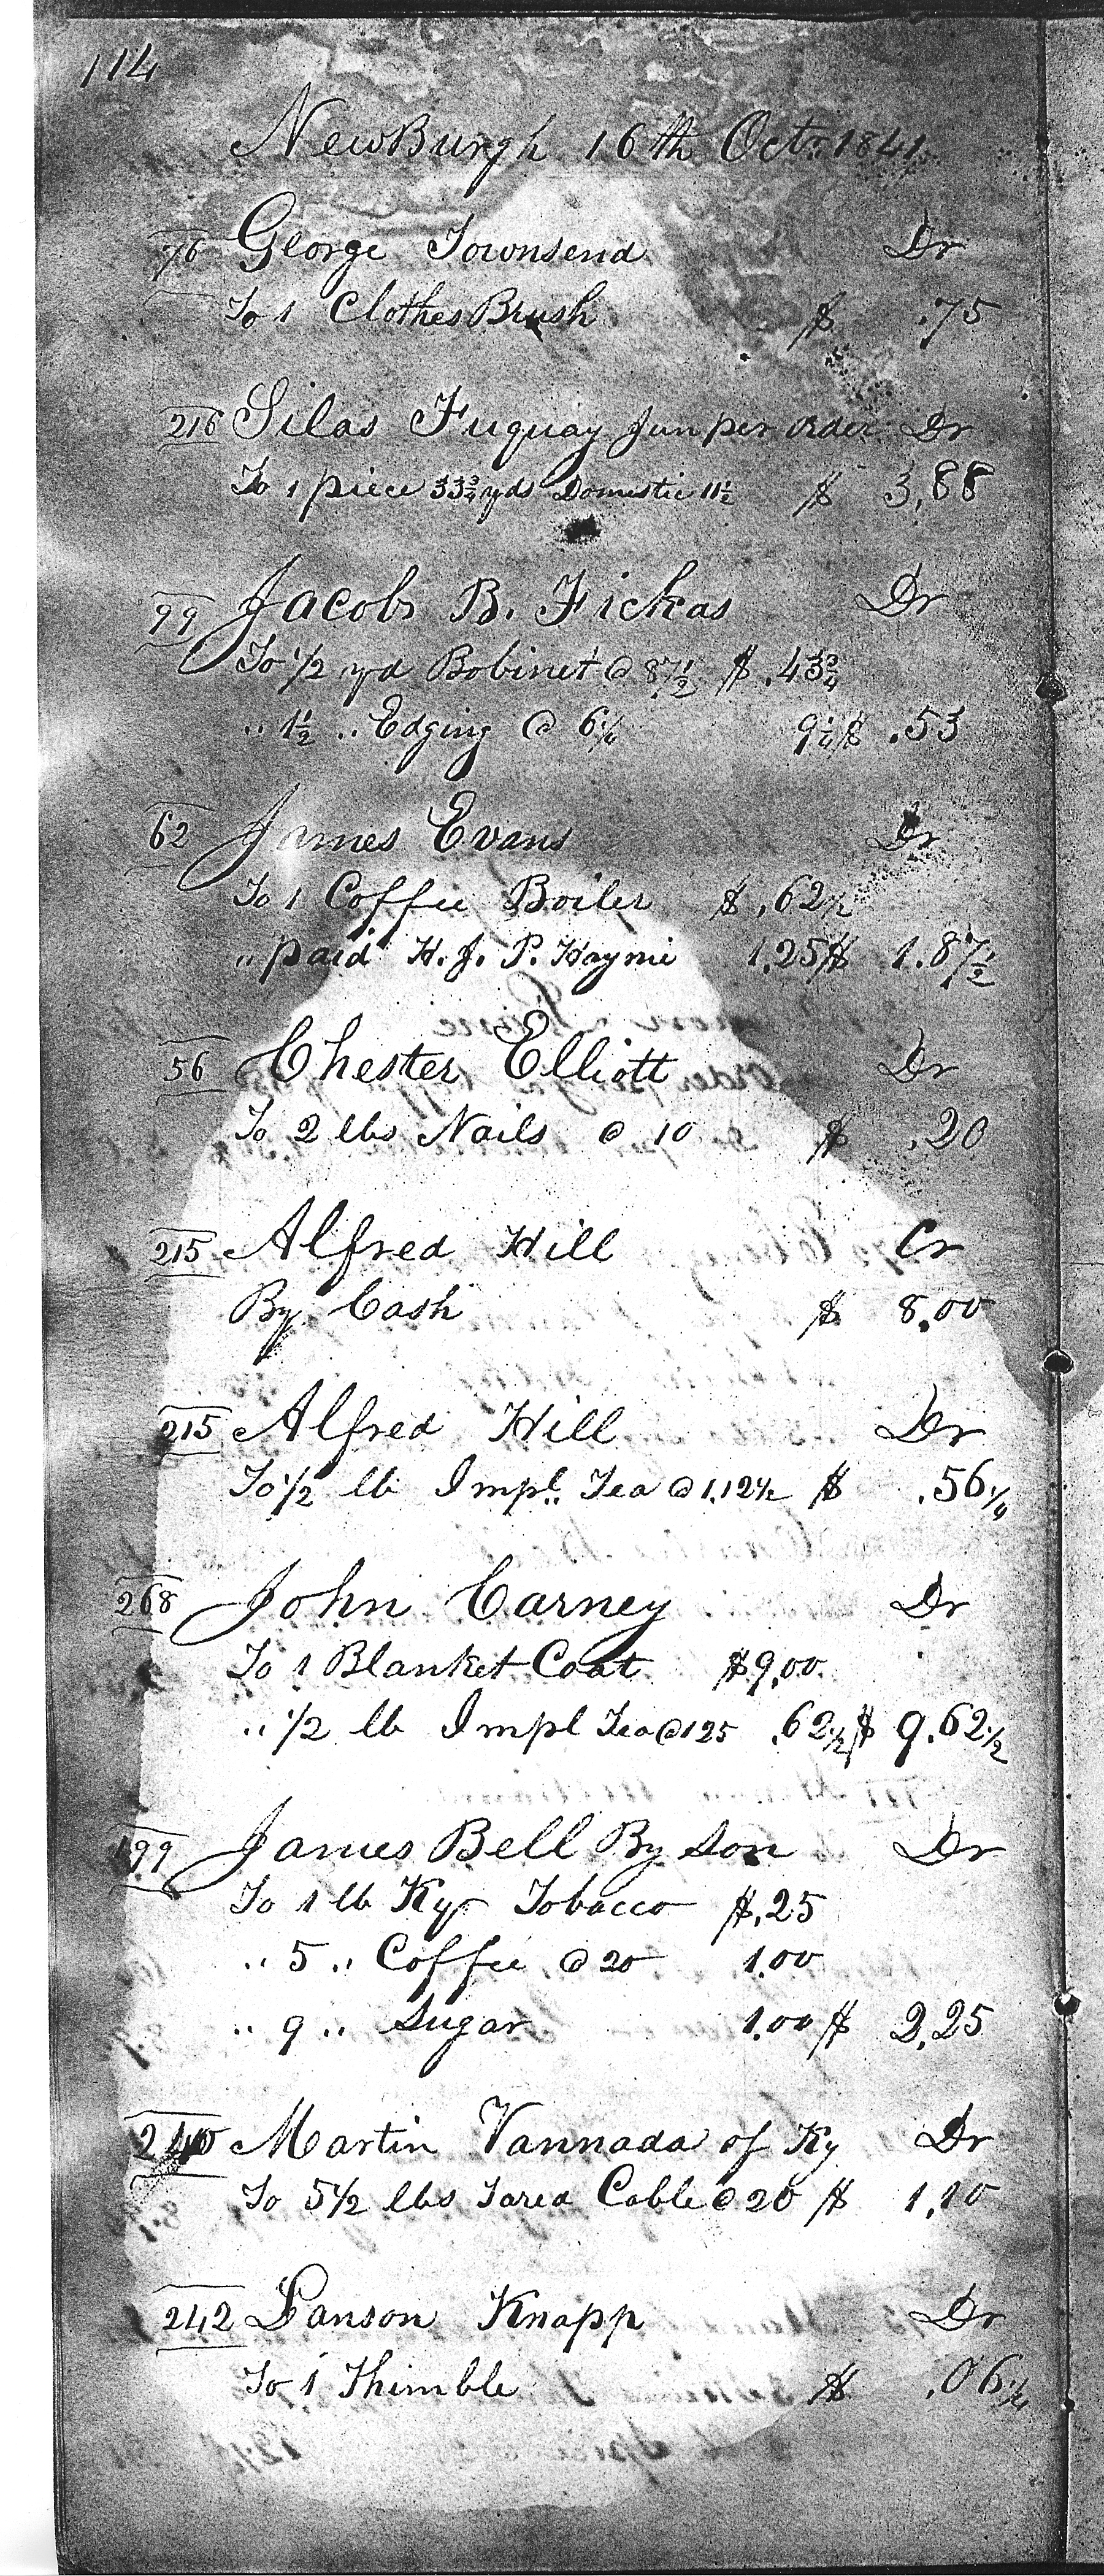 114
NewBurgh 16th Octr. 1841.
76 George Townsend Dr
To 1 Clothes Brush $ .75
216 Silas Fuquay Jun per order Dr
To 1 piece 33¾ yds Domestic 11½ $ 3,88
99 Jacob B. Fickas Dr
To 1/2 yd Bobinet @ 87½ $ .43¾
" 1½ " Edging @ 6¼ 9¼ $ .53
62 James Evans Dr
To 1 Coffee Boiler $ .62½
" paid H. J. P. Haynie 1,25 $ 1.87½
56 Chester Elliott Dr
To 2 lbs Nails @ 10 $ .20
215 Alfred Hill Cr
By Cash $ 8,00
215 Alfred Hill Dr
To 1/2 lb Impl. Tea @ 1,12½ $ .56¼
268 John Carney Dr
To 1 Blanket Coat $9,00
" 1/2 lb Impl Tea @ 125 .62½ $ 9.62½
199 James Bell By Son Dr
To 1 lb Ky Tobacco $.25
" 5 " Coffee @ 20 1.00
" 9 " Sugar 1.00 $ 2,25
240 Martin Vannada of Ky Dr
To 5½ lbs Tared Cable @ 20 $ 1,10
242 Lanson Knapp Dr
To 1 Thimble $ .06¼